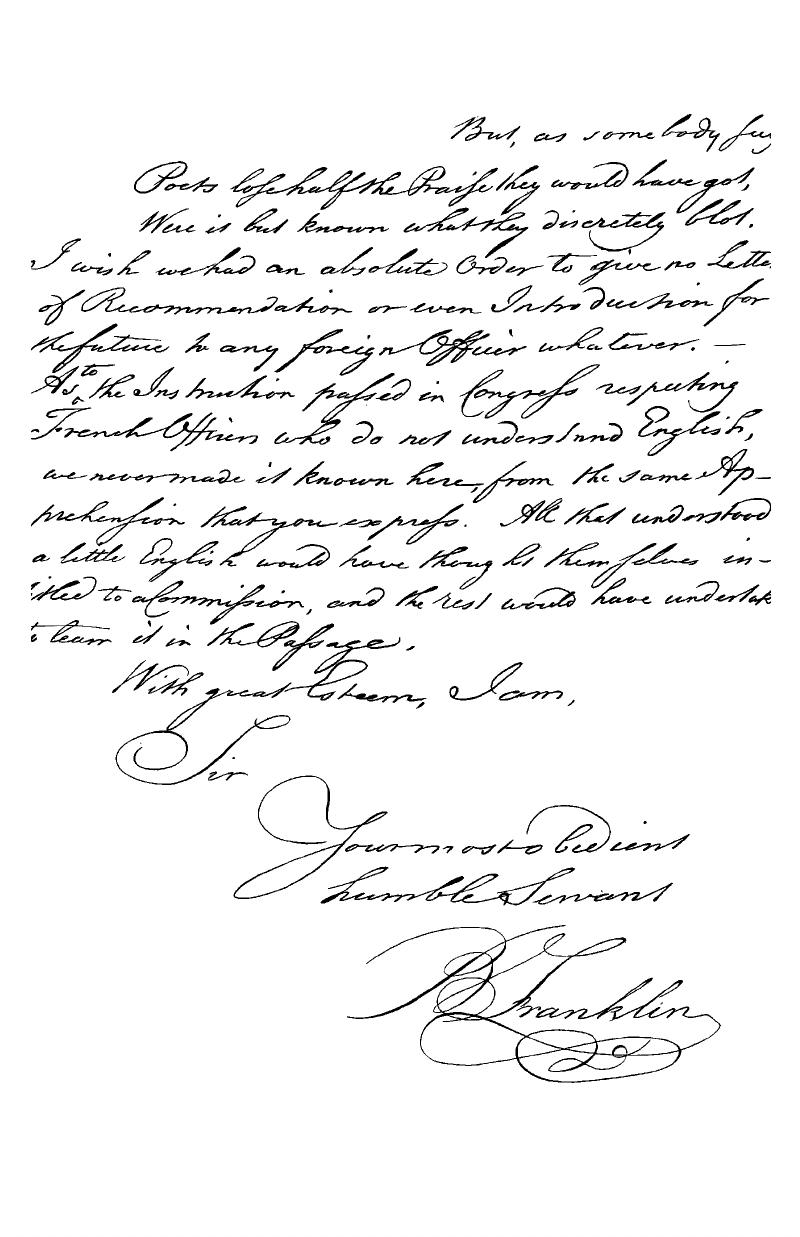 But, as somebody say
Poets lose half the Praise they would have got,
Were it but known what they discretely blot.
I wish we had an absolute Order to give no Lette
of Recommendation or even Introduction for
the future to any foreign Officer whatever. —
As to the Instruction passed in Congress respecting
French Officers who do not understand English,
we never made it known here, from the same Ap-
prehension that you express. All that understood
a little English would have thought themselves in-
itled to a Commission, and the rest would have undertak
to learn it in the Passage.
With great Esteem, I am,
Sir
Your most obedient
humble Servant
B Franklin